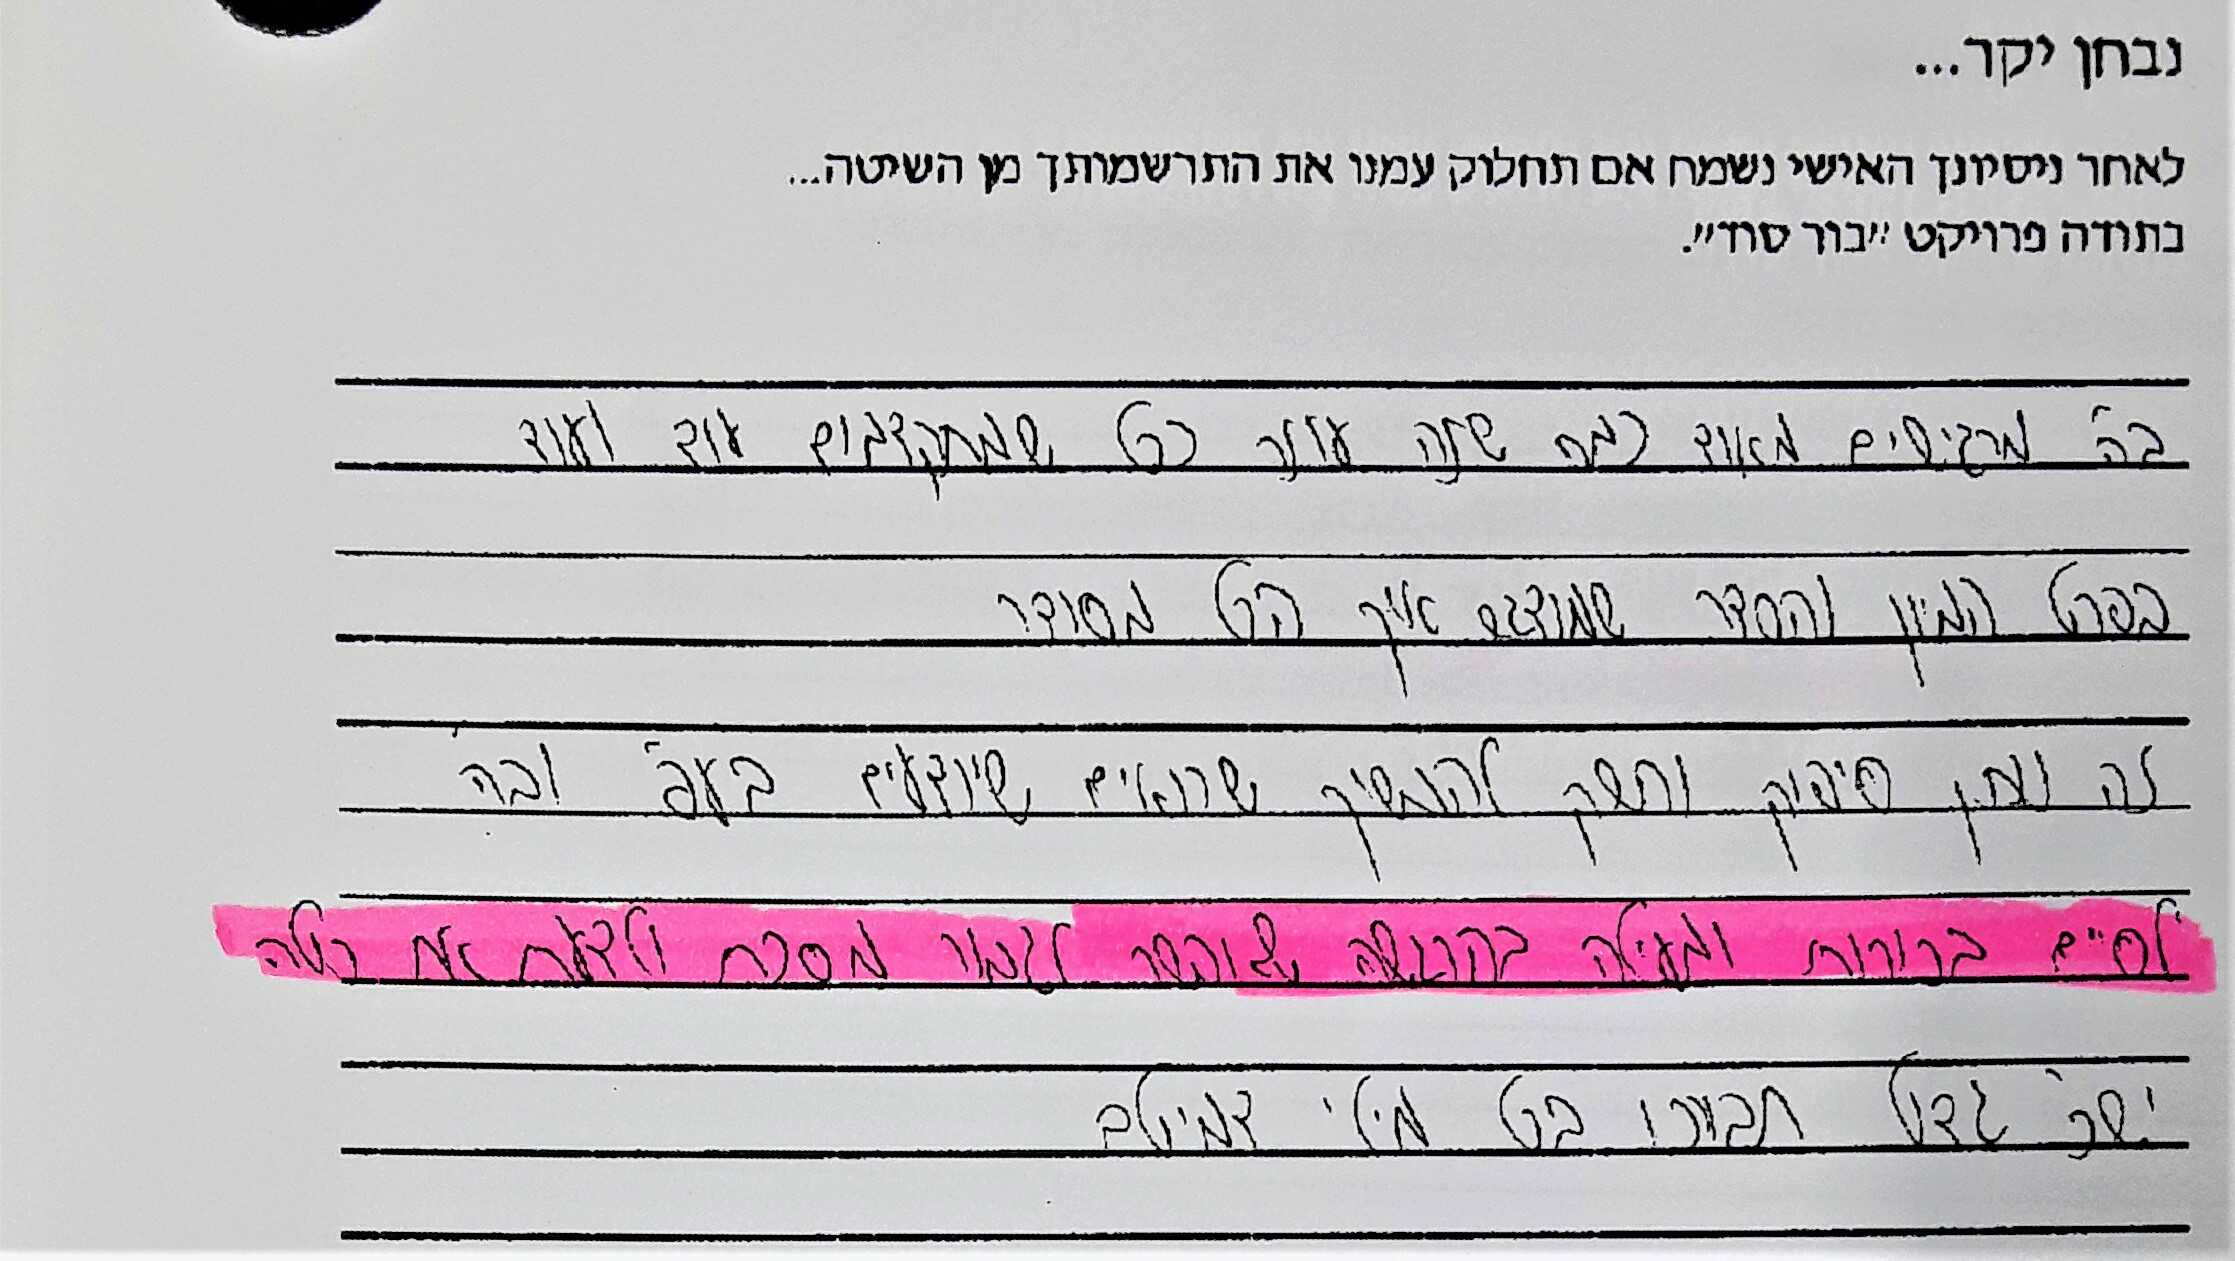 נבחן יקר...
לאחר ניסיונך האישי נשמח אם תחלוק עמנו את התרשמותך מן השיטה...
בתודה פרויקט "בור סוד".
בה' מרגישים מאוד כמה שזה עוזר ככל שמתקדמים עוד ועוד
בפרט המיון והסדר שמודגש איך הכל מסודר
זה נותן סיפוק וחשק להמשיך שרואים שיודעים בע"פ ובה'
לסיים ברורות ומעולה בהרגשה לגמור מסכת ולדעת את כולה
ישכ' גדול תבורכו בכל מילי דמיטב